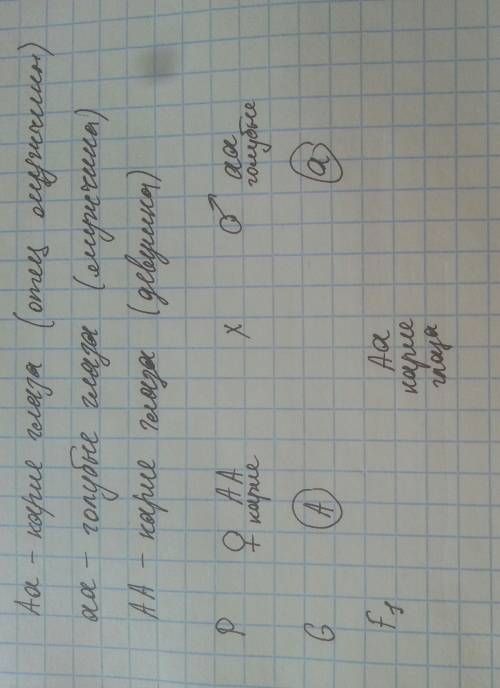 Аа – карие глаза (отец мужчины)
аа – голубые глаза (мужчина)
АА – карие глаза (девушка)
P ♀ АА х ♂ аа
карие голубые
G А а
F₁ Аа
карие
глаза